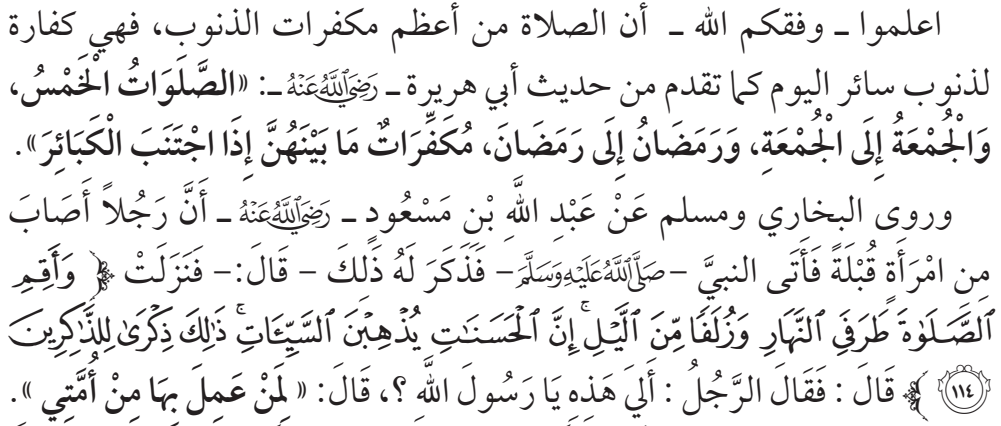 اعلموا ـ وفقكم الله ـ أن الصلاة من أعظم مكفرات الذنوب، فهي كفارة
لذنوب سائر اليوم كما تقدم من حديث أبي هريرة ـ رَضِيَ اللَّهُ عَنْهُ ـ: «الصَّلَوَاتُ الْخَمْسُ،
وَالْجُمْعَةُ إِلَى الْجُمْعَةِ، وَرَمَضَانُ إِلَى رَمَضَانَ، مُكَفِّرَاتٌ مَا بَيْنَهُنَّ إِذَا اجْتَنَبَ الْكَبَائِرَ».
وروى البخاري ومسلم عَنْ عَبْدِ اللَّهِ بْنِ مَسْعُودٍ ـ رَضِيَ اللَّهُ عَنْهُ ـ أَنَّ رَجُلاً أَصَابَ
مِن امْرَأَةٍ قُبْلَةً فَأَتَى النبيَّ –صَلَّى اللَّهُ عَلَيْهِ وَسَلَّمَ– فَذَكَرَ لَهُ ذَلِكَ – قَالَ:– فَنَزَلَتْ ﴿ وَأَقِمِ
ٱلصَّلَوٰةَ طَرَفَىِ ٱلنَّهَارِ وَزُلَفًا مِّنَ ٱلَّيْلِ ۚ إِنَّ ٱلْحَسَنَٰتِ يُذْهِبْنَ ٱلسَّيِّـَٔاتِ ۚ ذَٰلِكَ ذِكْرَىٰ لِلذَّٰكِرِينَ
١١٤ ﴾ قَالَ : فَقَالَ الرَّجُلُ : أَلِيَ هَذِهِ يَا رَسُولَ اللَّهِ ؟، قَالَ: « لِمَنْ عَمِلَ بِهَا مِنْ أُمَّتِي ».